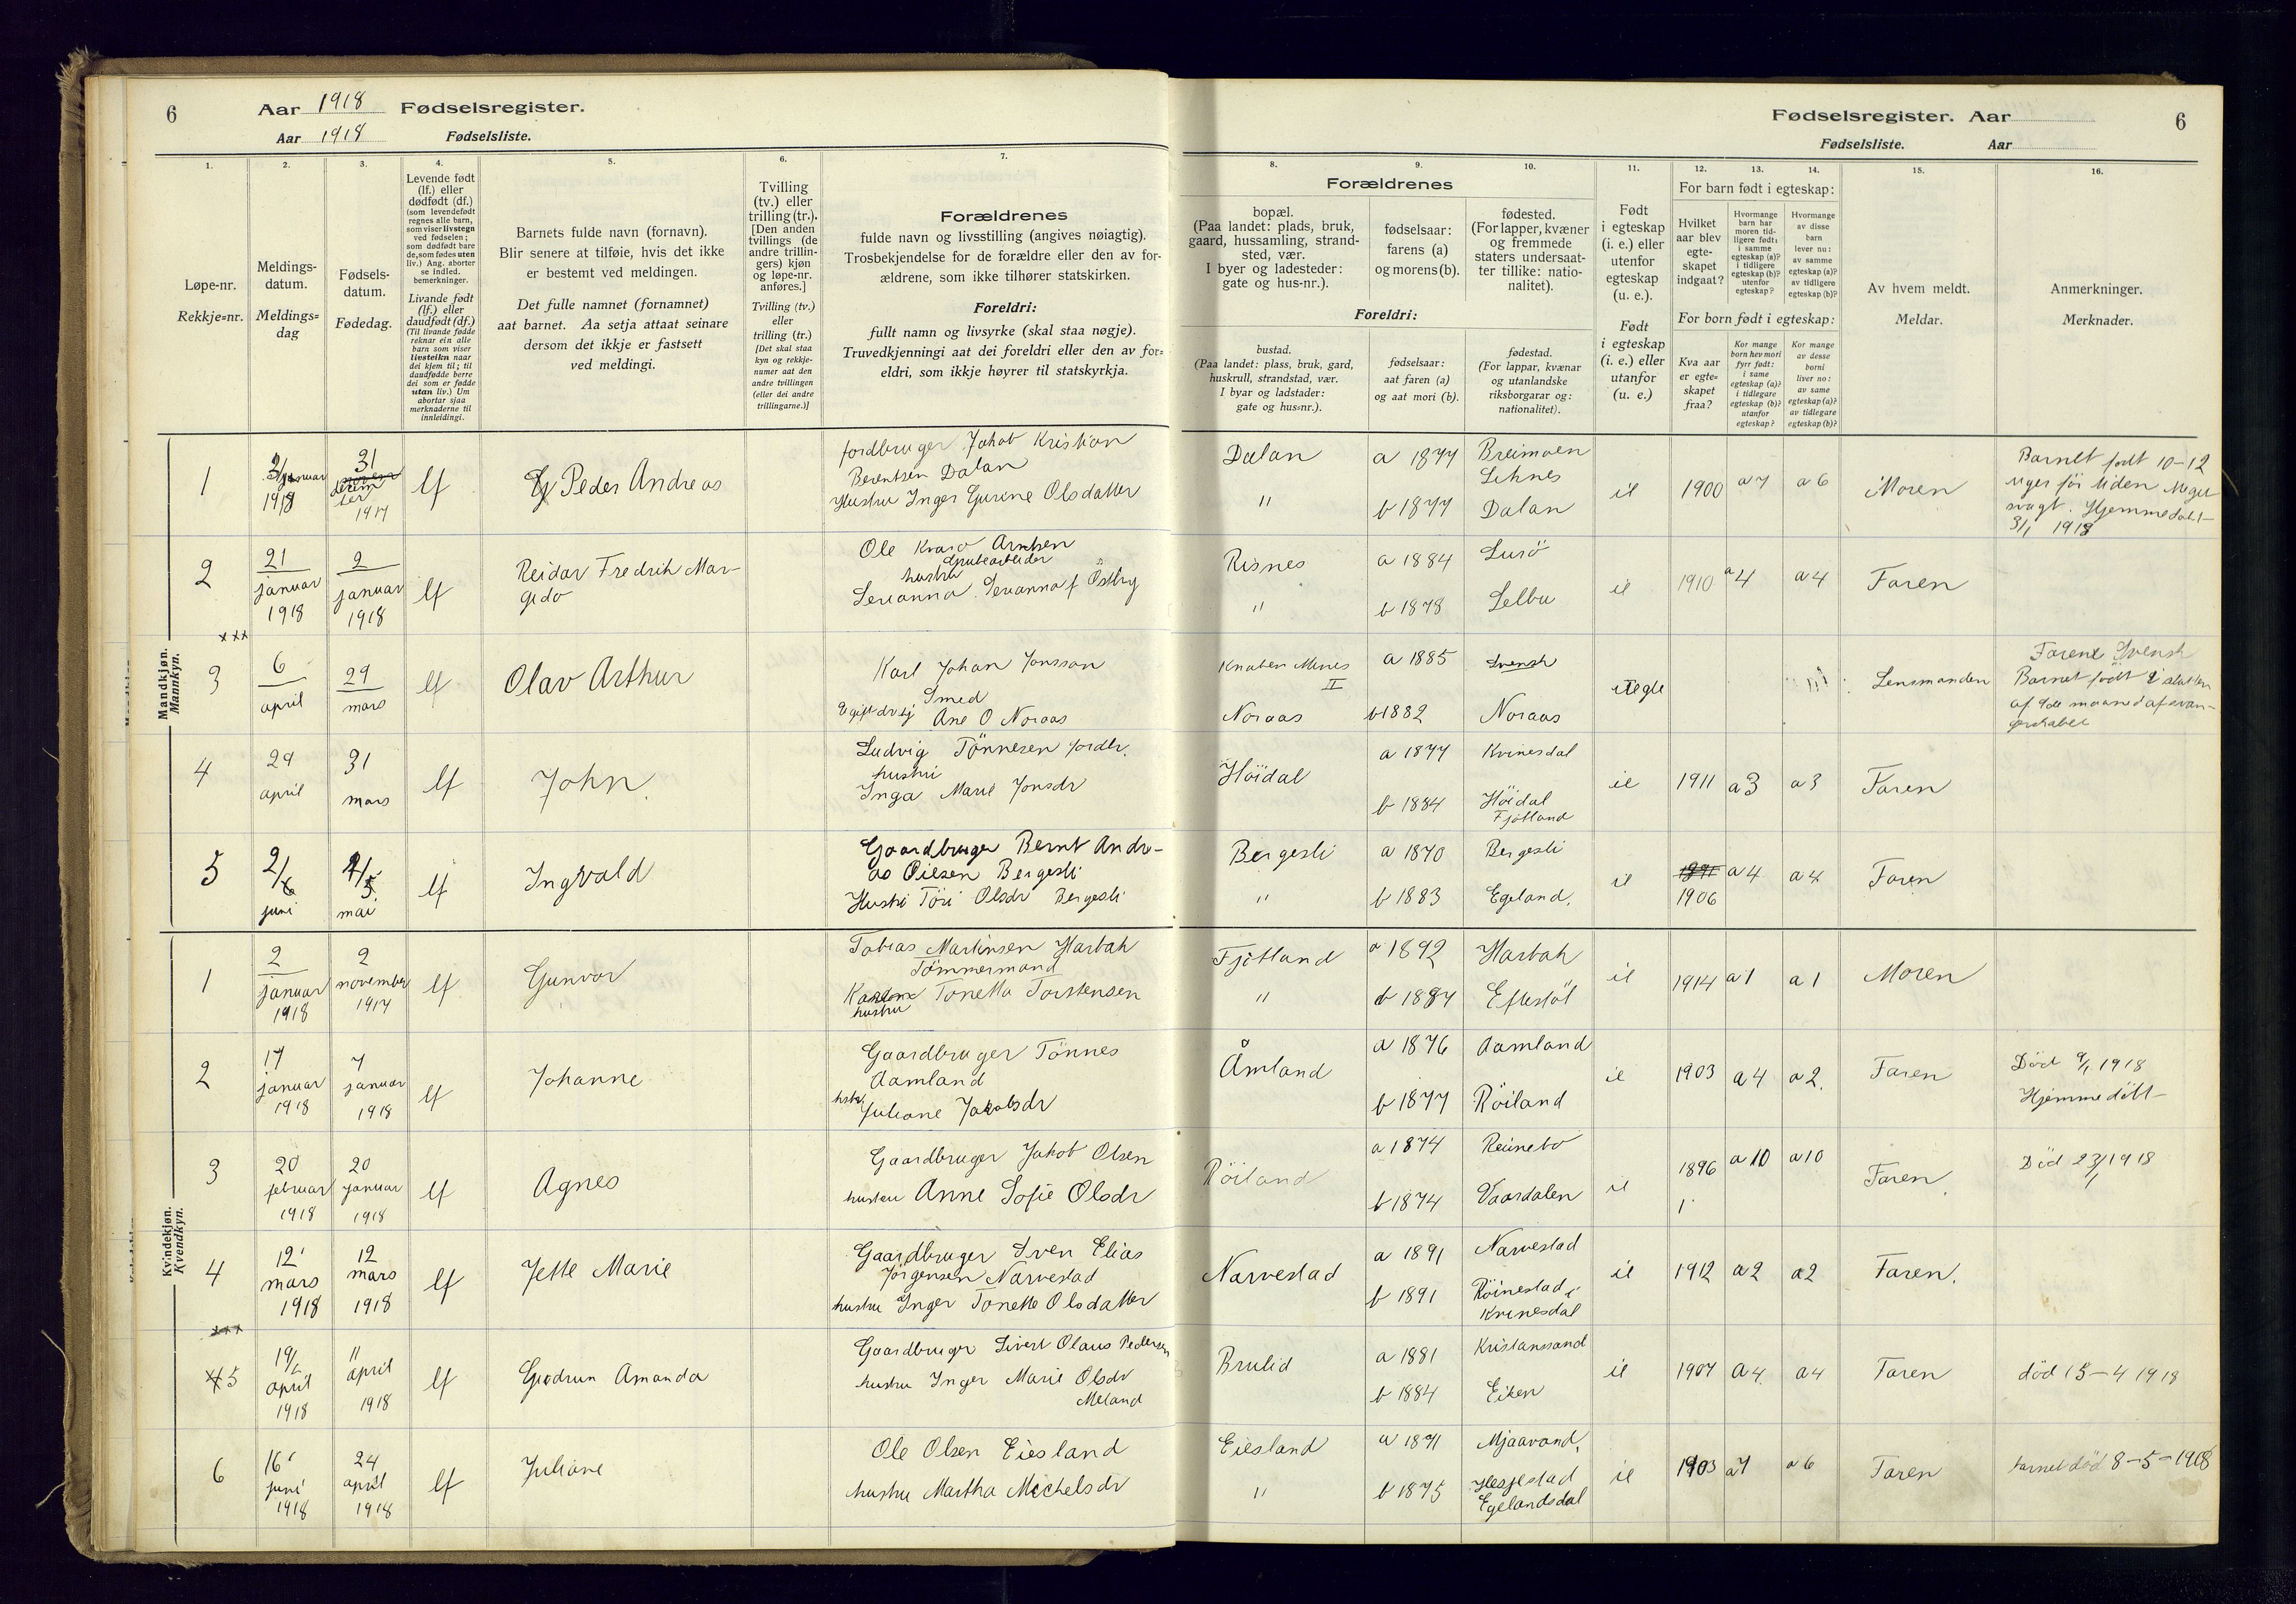 6 Aar 1918 Fødselsregister.
Aar 1918 Fødselsliste.
Fødselsregister. Aar 6
Fødselsliste. Aar
1. 2. 3. 4. 5. 6. 7. 8. 9. 10. 11. 12. 13. 14. 15. 16.
Løpe-nr.
Rekkje=nr.
Meldings-
datum.
Meldings=
dag
Fødsels-
datum.
Fødedag.
Levende født
(lf.) eller
dødfødt (df.)
(som levendefødt
regnes alle barn,
som viser livstegn
ved fødselen;
som dødfødt bare
de, som fødes uten
liv.) Ang. aborter
se indled.
bemerkninger.
Livande født
(lf.) eller
daudfødt (df.)
(Til livande fødde
reknar ein alle
born som viser
livsteikn naar
dei kjem til; til
daudfødde berre
dei som er fødde
utan liv.) Um
abortar sjaa
merknaderne til
innleidingi.
Barnets fulde navn (fornavn).
Blir senere at tilføie, hvis det ikke
er bestemt ved meldingen.
Det fulle namnet (fornamnet)
aat barnet. Aa setja attaat seinare
dersom det ikkje er fastsett
ved meldingi.
Tvilling
(tv.) eller
trilling (tr.).
[Den anden
tvillings (de
andre trillin-
gers) kjøn
og løpe-nr.
anføres.]
Tvilling (tv.)
eller
trilling (tr.)
[Det skal staa
kyn og rekkje-
numer aat den
andre tvillingen
(eller dei andre
trillingarne.)]
Forældrenes
fulde navn og livsstilling (angives nøiagtig).
Trosbekjendelse for de forældre eller den av for-
ældrene, som ikke tilhører statskirken.
Foreldri:
fullt namn og livsyrke (skal staa nøgje).
Truvedkjenningi aat dei foreldri eller den av for=
eldri, som ikkje høyrer til statskyrkja.
Forældrenes
bopæl.
(Paa landet: plads, bruk,
gaard, hussamling, strand-
sted, vær.
I byer og ladesteder:
gate og hus-nr.).
fødselsaar:
farens (a)
og morens (b).
fødested.
(For lapper, kvæner
og fremmede
staters undersaat-
ter tillike: natio-
nalitet).
Foreldri:
bustad.
(Paa landet: plass, bruk, gard,
huskrull, strandstad, vær.
I byar og ladstader:
gate og hus=nr.).
fødselsaar:
aat faren (a)
og aat mori (b).
fødestad.
(For lappar, kvænar
og utanlandske
riksborgarar og:
nationalitet).
Født
i egteskap
(i. e.) eller
utenfor
egteskap
(u. e.).
Født
i egteskap
(i. e.) eller
utanfor
(u. e.)
For barn født i egteskap:
Hvilket
aar blev
egte-
skapet
indgaat?
Hvormange
barn har
moren tid-
ligere født:
i samme
egteskap (a)?
i tidligere
egteskap (b)?
utenfor
egteskap?
Hvormange
av disse
barn
lever nu:
av samme
egteskap (a)?
av tidligere
egteskap (b)?
For born født i egteskap:
Kva aar
er egte=
skapet
fraa?
Kor mange
born hev mori
fyrr født:
i same
egteskap (a)?
i tidlegare
egteskap (b)?
utanfor
egteskap?
Kor mange
av desse
borni
liver no:
av same
egteskap (a)?
av tidlegare
egteskap (b)?
Av hvem meldt.
Meldar.
Anmerkninger.
Merknader.
Mandkjøn.
Mannkyn.
1 januar 1918 31 1917 lf Peder Andreas
Jordbruger Jakob Kristian
Berentsen Dalan
Hustru Inger Gurine Olsdatter
Dalan a 1877 Breimoen
Lehnes
" b 1877 Dalan
1900 a 7 a 6 Moren
Barnet født 10-12
uger før tiden Meget
svagt. Hjemmedøbt
3/1 1918
2 21 januar 1918 2 januar 1918 lf Reidar Fredrik Mar-
gido
Ole Arntsen
Grubearbeider
hustru
Serianna f Østby
Risnes a 1884 Lurö
" b 1878 Selbu
1910 a 4 a 4 Faren
xxx
3 6 april 29 mars lf Olav Arthur
Karl Johan Jonsson
Smed
Ane O Noraas
Knaben Mines a 1885 Svensk
II
Noraas b 1882 Noraas
Uegte Lensmanden
Farene Svensk
Barnet født i slutten
af 9de maaned af svan-
gerskabet
4 29 april 31 mars lf John
Ludvig Tönnesen Jordbr.
hustru
Inga Marie Jonsdr
Höidal a 1877 Kvinesdal
b 1884 Höidal
Fjotland
1911 a 3 a 3 Faren
5 2/6 juni 4/5 mai lf Ingvald
Gaardbruger Bernt Andr-
as Bergesli
Hustru Töri Olsdr Bergesli
Bergesli a 1870 Bergesli
" b 1883 Egeland.
1906 a 4 a 4 Faren
Kvindekjøn.
Kvendkyn.
1 2 januar 1918 2 november 1917 lf Gunvor
Tobias Martinsen Harbak
Tømmermand
Tonetta Torstensen
hustru
Fjotland a 1892 Harbak
" b 1887 Eftestöl
1914 a 1 a 1 Moren
2 17 januar 1918 7 januar 1918 lf Johanne
Gaardbruger Tönnes
Aamland
hstr. Juliane Jakobsdr
Åmland a 1876 Aamland
b 1877 Röiland
1903 a 4 a 2. Faren
Död 9/1 1918
Hjemmedöbt
3 20 februar 1918 20 januar 1918 lf Agnes
Gaardbruger Jakob Olsen
hustru Anne Sofie Olsdr
Röiland a 1874 Reinebo
b 1874 Vaardalen
1896 a 10 a 10 Faren
Död 23/1 1918
4 12 mars 1918 12 mars 1918 lf Jette Marie
Gaardbruger Sven Elias
Jörgensen Narvestad
hustru Inger Tonette Olsdatter
Narvestad a 1891 Narvestad
b 1891 Röinestad i
Kvinesdal
1912 a 2 a 2 Faren.
xxx
5 19/4 april 1918 11 april 1918 lf Gudrun Amanda
Gaardbruger Sivert Olaus Pedersen
hustru Inger Marie Olsdr
Meland
Brulid a 1881 Kristianssand
b 1884 Eiken
1907 a 4 a 4 Faren
död 15-4 1918
6 16 juni 1918 24 april 1918 lf Juliane
Ole Olsen Eiesland
hustru Martha Michelsdr
Eiesland a 1871 Mjaavand,
" b 1875 Hesjestad
Egelandsdal
1903 a 7 a 6 Faren
barnet död 8-5-1918